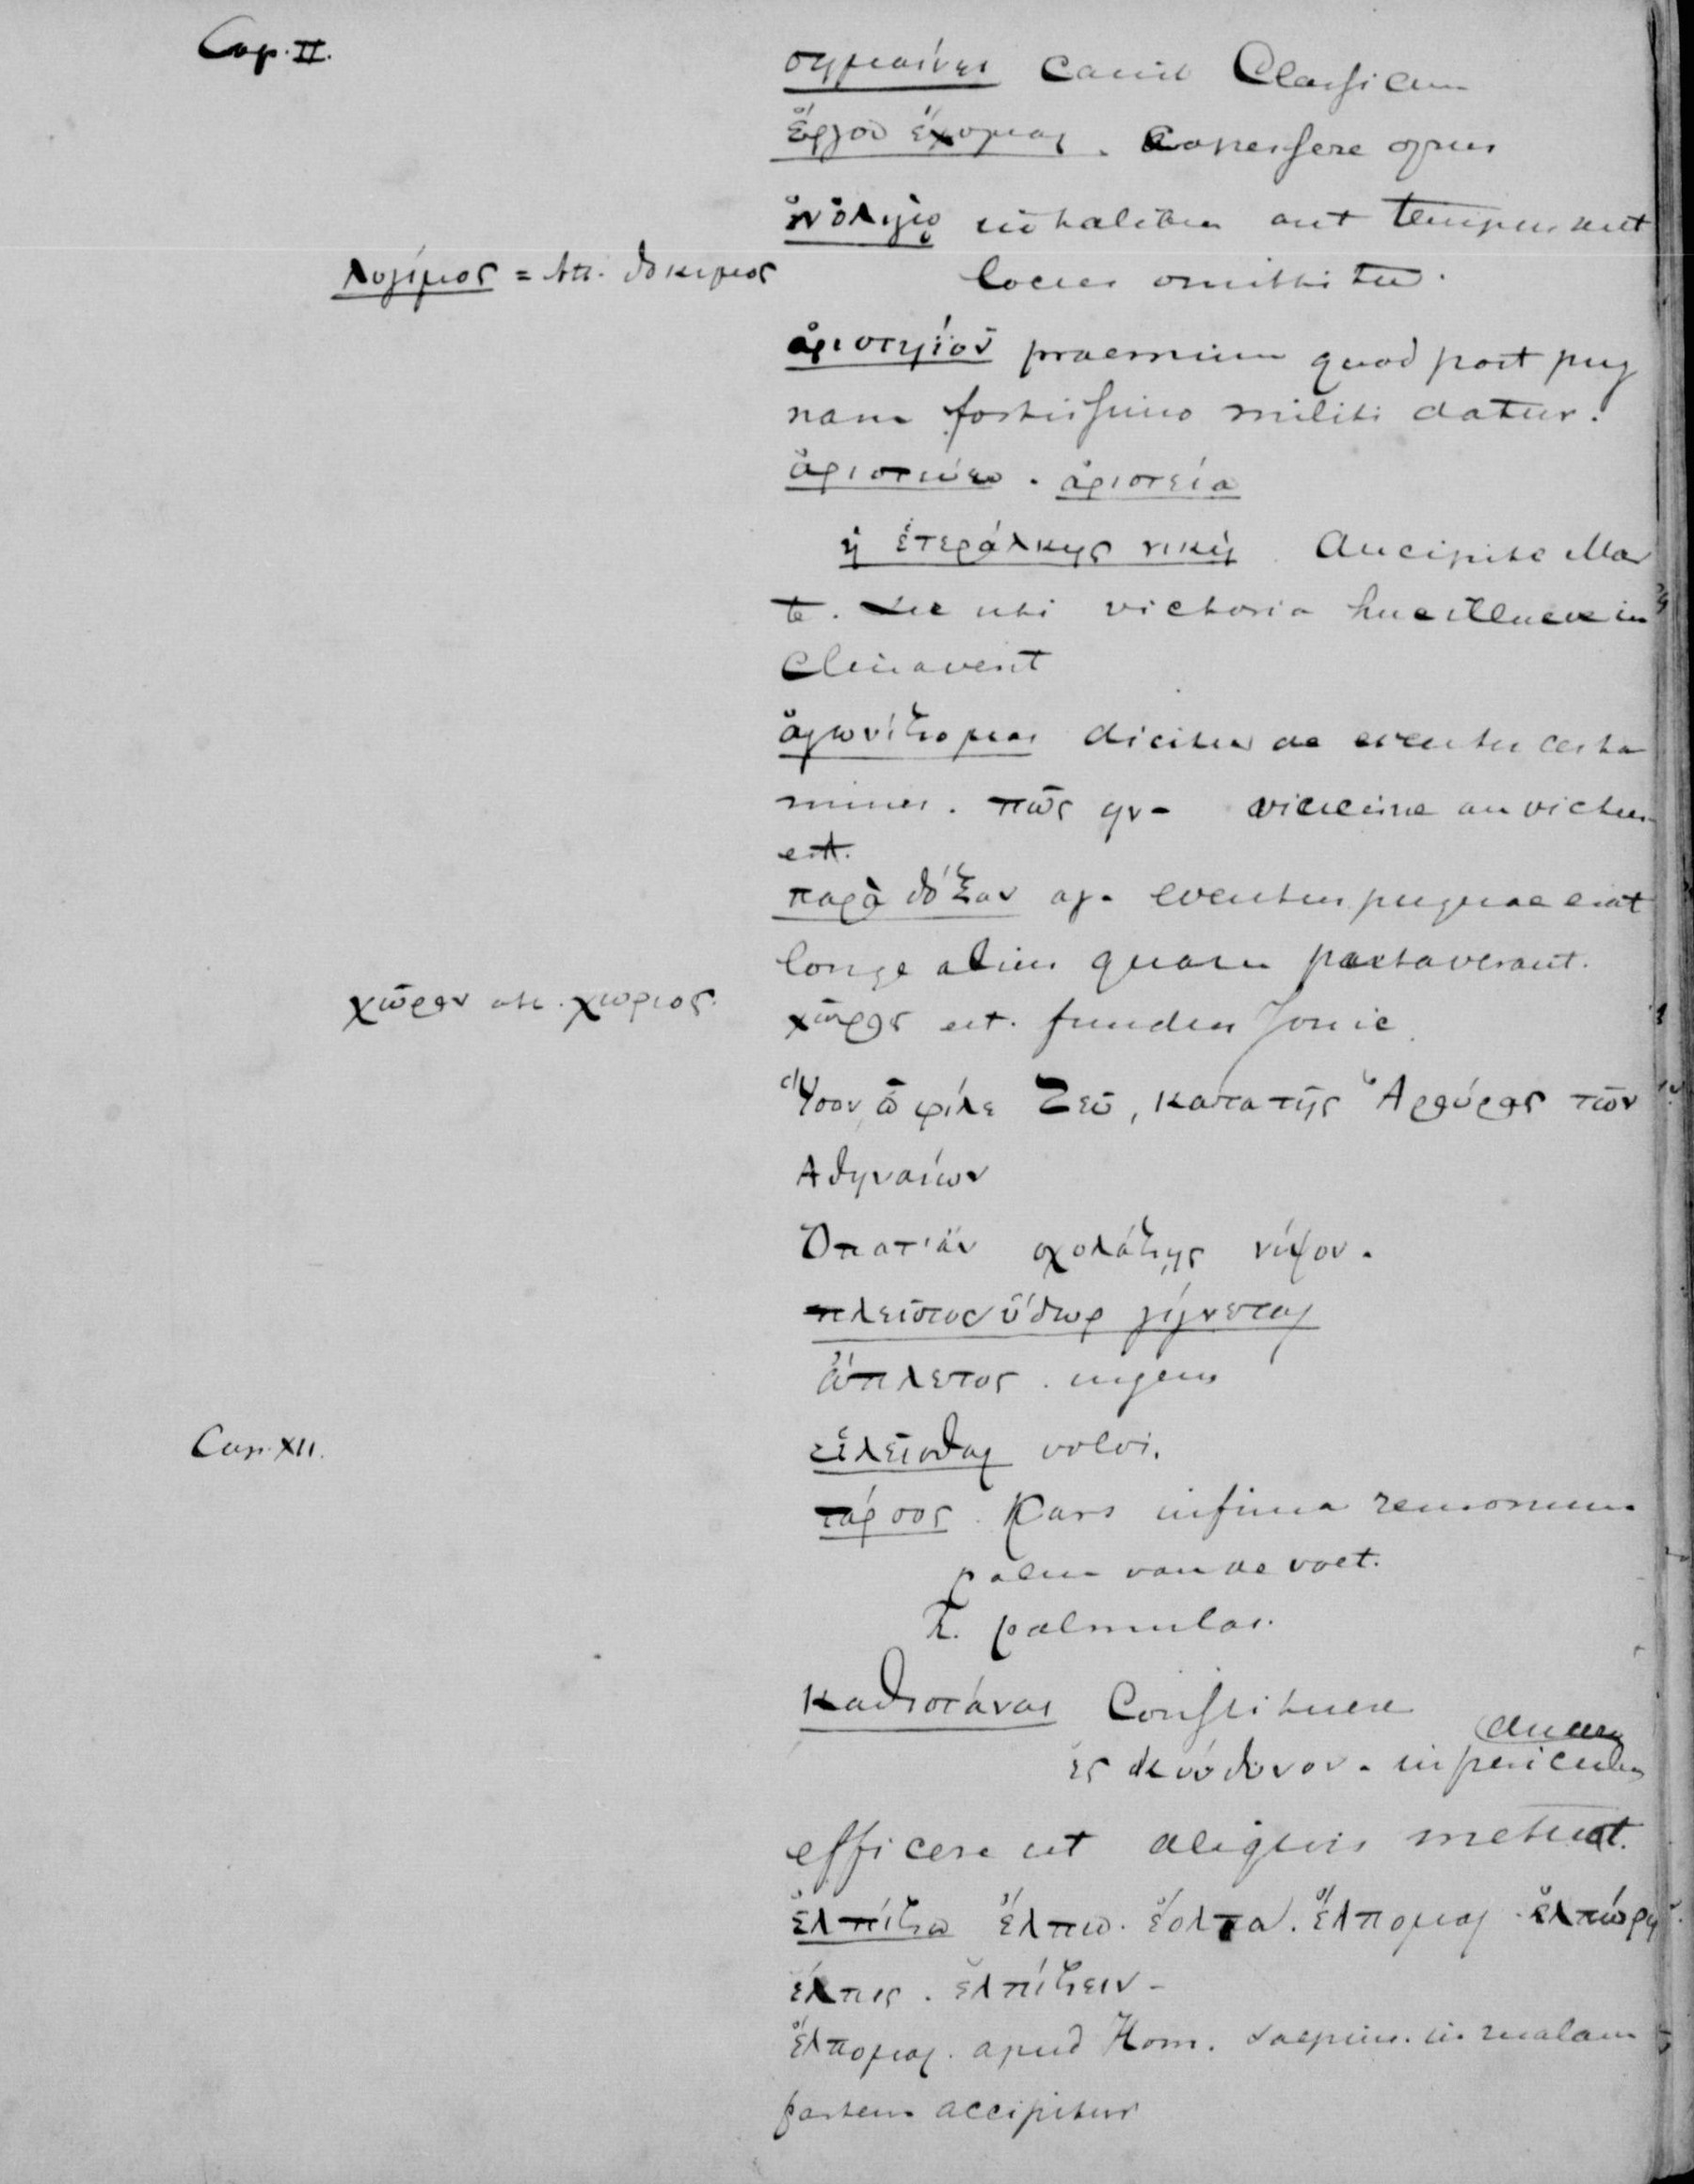 Cap. II.
σημαίνει canit Classicum
ἔργου ἔχομαι. Capessere opus
ἐν ὀλίγῳ in talibus aut tempus aut
λογίμος = Att. δοκιμος
locus omittitur.
ἀριστηίον praemium quod post pug
nam fortissimo militi datur.
ἀριστεύω. ἀριστεία
ἡ ἑτεράλκης νική Ancipite Mar
te. ubi victoria huc illuc in
clinaverit
ἀγωνίζομαι dicitur de eventu certa
minis. πῶς ην- vicerine an victus
est.
παρὰ δόξαν αγ. eventus pugnae erat
longe alius quam putaverant.
χῶρον att. χωριος.
χῶρος est. fundus Jonic.
Ὕσον, ὦ φίλε Ζεῦ, κατα τῆς Ἀρούρας τῶν
Αθηναίων
Ὅπατ'ἀν σχολάζῃς νίψον.
πλεῖστος ὕδωρ γίγνεται
ἄπλετος. ingens
Cap. XII.
εἱλεῖσθαι volvi.
τάρσος. Pars infima remorum
palm van de voet.
R. palmulas.
καθιστάναι Constituere
ducere
ἐς κίνδυνον. in periculum
efficere ut aliquis metuat.
ἐλπίζω ἔλπω. ἔολπα. ἔλπομαι. ἐλπώρη
ἐλπις. ἐλπίζειν -
ἔλπομαι. apud Hom. saepius in malam
partem accipitur